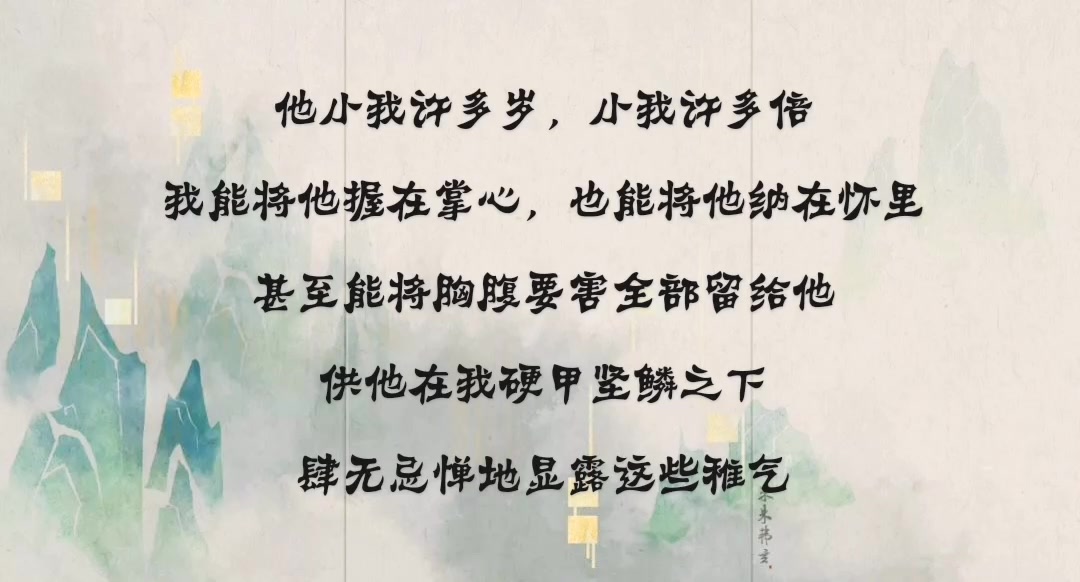 他小我许多岁，小我许多倍
我能将他握在掌心，也能将他纳在怀里
甚至能将胸腹要害全部留给他
供他在我硬甲坚鳞之下
肆无忌惮地显露这些稚气